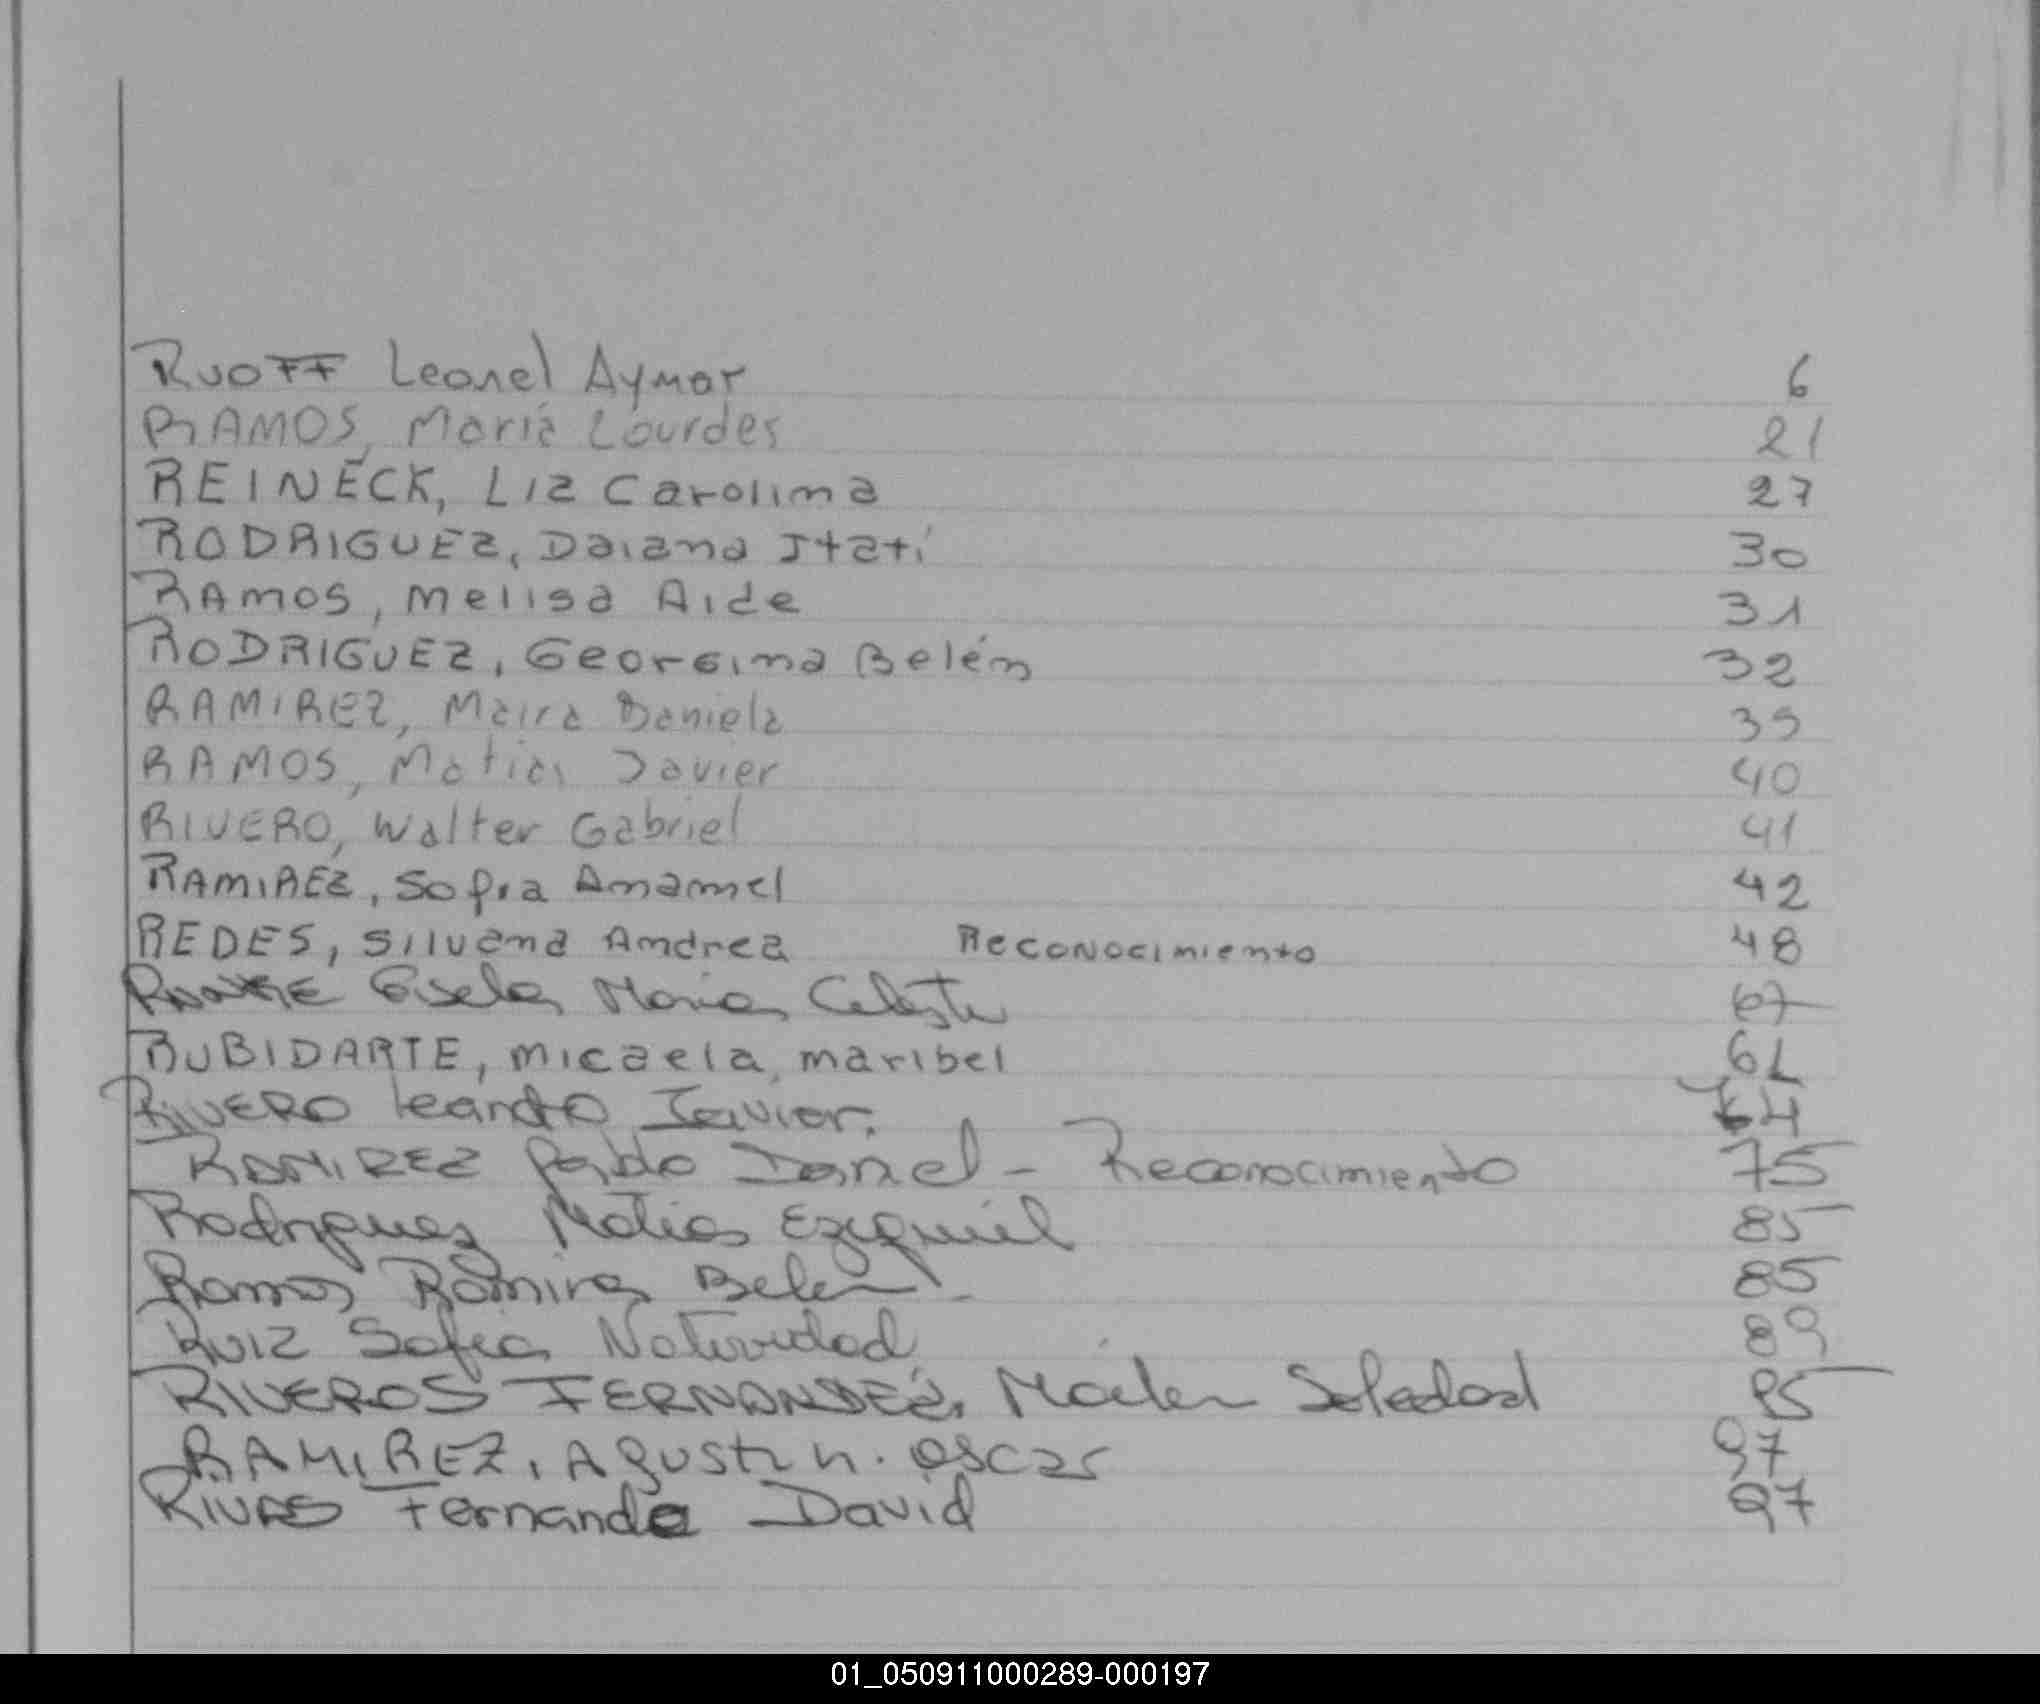 RUOFF Leonel Aymar 6
RAMOS, María Lourdes 21
REINECK, Liz Carolina 27
RODRIGUEZ, Daiana Itatí 30
RAMOS, Melisa Aide 31
RODRIGUEZ, Georgina Belén 32
RAMIREZ, Maira Daniela 39
RAMOS, Matias Javier 40
RIVERO, Walter Gabriel 41
RAMIREZ, Sofia Anamel 42
REDES, Silvana Andrea Reconocimiento 48
Gisela María Celeste 67
RUBIDARTE, Micaela, maribel 62
RIVERO Leandro Javier.
RAMIREZ Pablo Daniel - Reconocimiento 75
Rodriguez Matias Ezequiel 85
Ramos Romina Belen - 85
RUIZ Sofia Natividad 89
RIVEROS FERNANDEZ, Mailen Soledad 95
RAMIREZ, Agustin. oscar 97
RIVAS Fernando David 97
01_050911000289-000197